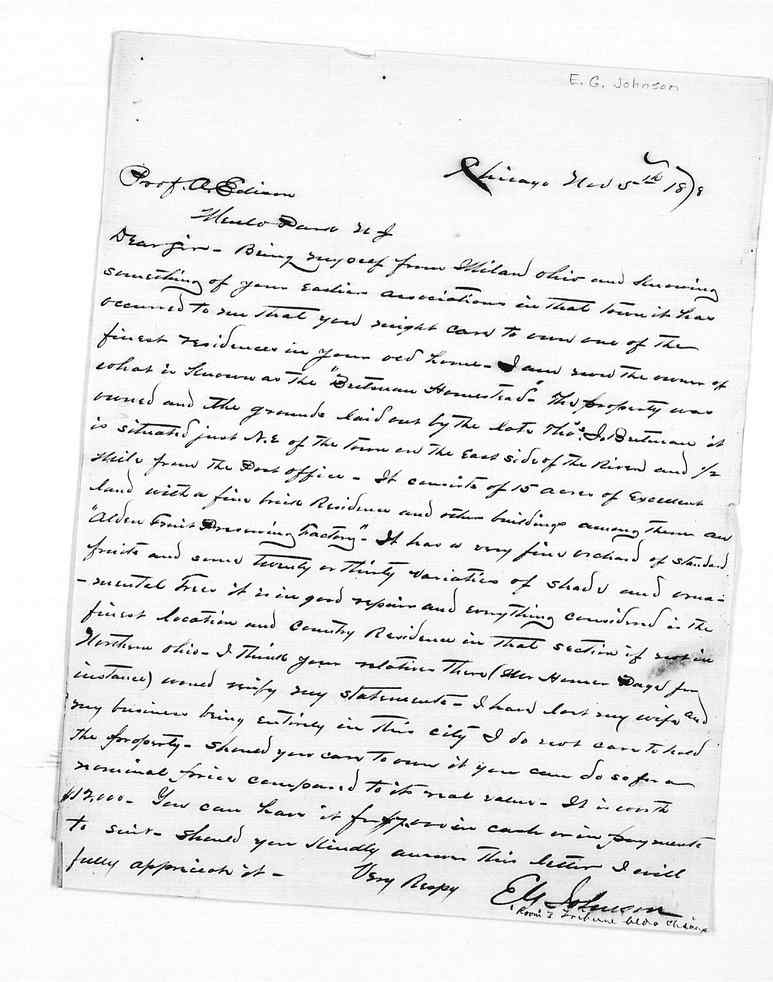 E. G. Johnson
Chicago Nov 5th 1878
Prof. A. Edison
Menlo Park N J
Dear Sir - Being myself from Milan Ohio and knowing
something of your earlier associations in that town it has
occurred to me that you might care to own one of the
finest residences in your old home - I am now the owner of
what is known as the "Butman Homestead" The property was
owned and the grounds laid out by the late Thos. J. Butman it
is situated just N.E of the town on the East side of the River and 1/2
mile from the Post office - It consists of 15 acres of Excellent
land with a fine brick Residence and other buildings among them an
"Alden Fruit Preserving Factory" - It has a very fine orchard of standard
fruits and some twenty or thirty varieties of shade and orna-
-mental trees it is in good repair and everything considered is the
finest location and Country Residence in that section if not in
Northern Ohio - I think your relatives there (Mr Homer Page for
instance) would verify my statements - I have lost my wife and
my business being entirely in this city I do not care to hold
the property - Should you care to own it you can do so for a
nominal price compared to its real value - It is worth
$12,000 - You can have it for in cash or in payments
to suit - Should you kindly answer this letter I will
fully appreciate it -
Very Respy
E G Johnson
Room 7 Tribune bldg Chicago